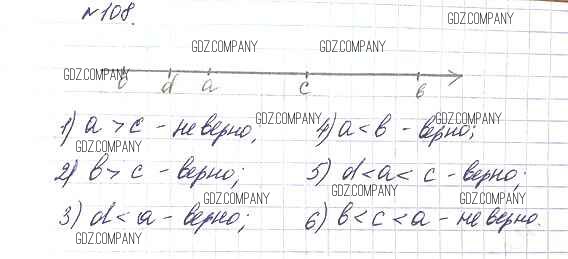 №108.
GDZ.COMPANY
GDZ.COMPANY GDZ.COMPANY
GDZ.COMPANY
d a c в
GDZ.COMPANY GDZ.COMPANY
1) a > c - неверно; 4) a < в - верно;
GDZ.COMPANY
2) в > c - верно; 5) d < a < c - верно;
GDZ.COMPANY GDZ.COMPANY
3) d < a - верно; 6) в < c < a - неверно.
GDZ.COMPANY